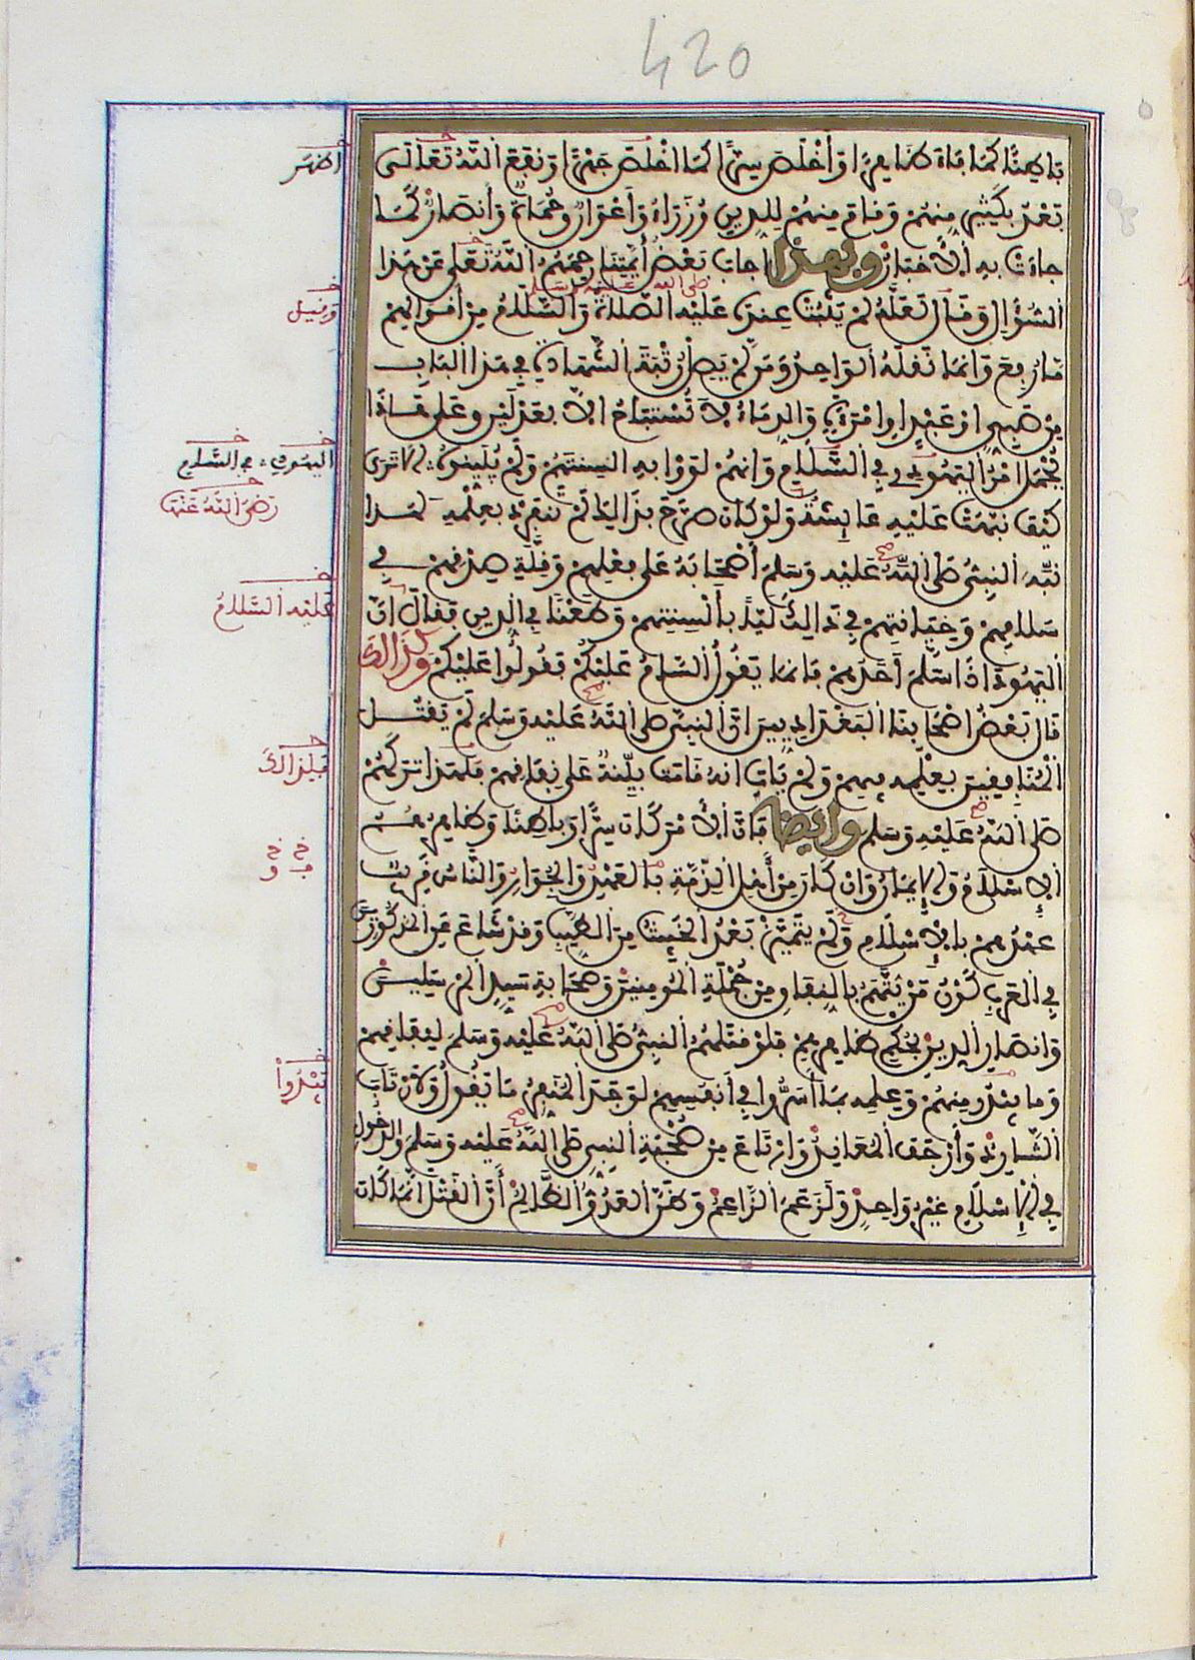 420
بَاطِنًا كَمَا فَاءَ ظَاهِرًا وَأَخْلَصَ سِرًّا كَمَا أَخْلَصَ جَهْرًا وَنَفَعَ اللَّهُ تَعَالَى
بَعْدُ بِكَثِيرٍ مِنْهُمْ وَقَامَ مِنْهُمْ لِلدِّينِ وُزَرَاءُ وَأَعْوَانٌ وَحُمَاةٌ وَأَنْصَارٌ كَمَا
جَاءَتْ بِهِ الْأَخْبَارُ وبهذا أجاب بَعْضُ أَئِمَّتِنَا رَحِمَهُمُ اللَّهُ تَعَلَى عَنْ هَذَا
السُّؤَالِ وَقَالَ لَعَلَّهُ لَمْ يَثْبُتْ عِنْدَهُ عَلَيْهِ الصَّلَاةُ وَالسَّلَامُ مِنْ أَقْوَالِهِمْ
مَا رُفِعَ وَإِنَّمَا نَقَلَهُ الْوَاحِدُ وَمَنْ لَمْ يَصِلْ رُتْبَةَ الشَّهَادَةِ فِي هَذَا الْبَابِ
مِنْ صَبِيٍّ أَوْ عَبْدٍ أَوِ امْرَأَةٍ وَالدِّمَاءُ لَا تُسْتَبَاحُ إِلَّا بِعَدْلَيْنِ وَعَلَى هَذَا
يُحْمَلُ أَمْرُ الْيَهُودِ فِي السَّلَامِ وَأَنَّهُمْ لَوَّوْا بِهِ أَلْسِنَتَهُمْ وَلَمْ يُبَيِّنُوهُ أَلَا تَرَى
كَيْفَ نَبَّهَتْ عَلَيْهِ عَائِشَةُ وَلَوْ كَانَ صَرَّحَ بِذَالِكَ لَمْ تَنْفَرِدْ بِعِلْمِهِ لهذا
نَبَّهَ النَّبِيُّ صَلَى اللَّهُ عَلَيْهِ وَسَلَمَ أَصْحَابَهُ عَلَى فِعْلِهِمْ وَقِلَّةِ صِدْقِهِمْ فِي
سَلَامِهِمْ وَخِيَانَتِهِمْ فِي ذَالِكَ لَيًّا بِأَلْسِنَتِهِمْ وَطَعْنًا فِي الدِّينِ فَقَالَ إِنَّ
الْيَهُودَ إِذَا سَلَّمَ أَحَدُهُمْ فَإِنَّمَا يَقُولُ السَّامُ عَلَيْكُمْ فَقُولُوا عَلَيْكُمْ وكذالك
قَالَ بَعْضُ أَصْحَابِنَا الْبَغْدَادِيِّينَ إِنَّ النَّبِيَّ صَلَى اللَّهُ عَلَيْهِ وَسَلَمَ لَمْ يَقْتُلِ
الْمُنَافِقِينَ بِعِلْمِهِ فِيهِمْ وَلَمْ يَاتِ أَنَّهُ قَامَتْ بَيِّنَةٌ عَلَى نِفَاقِهِمْ فَلِهَذَا تَرَكَهُمْ
صَلَى اللَّهُ عَلَيْهِ وَسَلَمَ وأيضا فَإِنَّ الْأَمْرَ كَانَ سِرًّا وَبَاطِنًا وَظَاهِرُهُمُ
الْإِسْلَامُ وَالْإِيمَانُ وَإِنْ كَانَ مِنْ أَهْلِ الذِّمَّةِ بِالْعَهْدِ وَالْجِوَارِ وَالنَّاسُ قَرِيبٌ
عَهْدُهُمْ بِالْإِسْلَامِ وَلَمْ يَتَمَيَّزْ بَعْدُ الْخَبِيثُ مِنَ الطَّيِّبِ وَقَدْ شَاعَ عَنِ الْمَذْكُورِينَ
فِي الْعَرَبِ كَوْنُ مَنْ يُتَّهَمُ بِالنِّفَاقِ مِنْ جُمْلَةِ الْمُومِنِينَ وَصَحَابَةِ سَيِّدِ الْمُرْسَلِينَ
وَأَنْصَارِ الدِّينِ بِحُكْمِ ظَاهِرِهِمْ فَلَوْ قَتَلَهُمُ النَّبِيُّ صَلَى اللَّهُ عَلَيْهِ وَسَلَمَ لِنِفَاقِهِمْ
وَمَا يَبْدُرُ مِنْهُمْ وَعِلْمِهِ بِمَا أَسَرُّوا فِي أَنْفُسِهِمْ لَوَجَدَ الْمُنَفِّرُ مَا يَقُولُ وَلَارْتَابَ
الشَّارِدُ وَأَرْجَفَ الْمُعَانِدُ وَارْتَاعَ مِنْ صُحْبَةِ النَّبِيِّ صَلَى اللَّهُ عَلَيْهِ وَسَلَمَ وَالدُّخُولِ
فِي الْإِسْلَامِ غَيْرُ وَاحِدٍ وَلَزَعَمَ الزَّاعِمُ وَظَنَّ الْعَدُوُّ الظَّالِمُ أَنَّ الْقَتْلَ إِنَّمَا كَانَ
أظهر
وقيل
اليهودي في السلام
رضي اللَّهُ عَنْهَا
عليه السَّلَامُ
فلذالك
يَبْدُوا